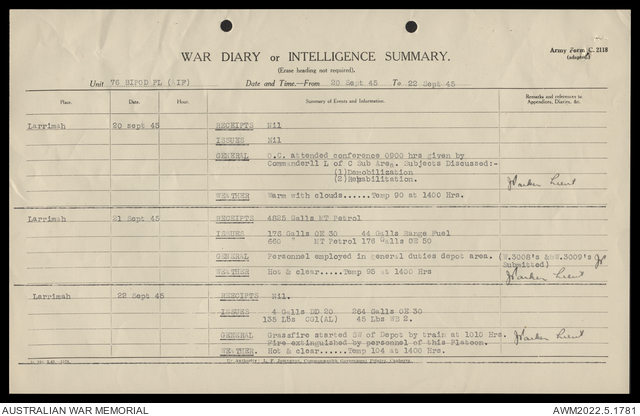 Army Form C. 2118
(adapted.)
WAR DIARY or INTELLIGENCE SUMMARY.
(Erase heading not required).
Unit 76 BIPOD PL (AIF) Date and Time.—From 20 Sept 45 To 22 Sept 45
Place. Date. Hour. Summary of Events and Information. Remarks and references to
Appendices, Diaries, &c.
Larrimah 20 sept 45 RECEIPTS Nil
ISSUES Nil
GENERAL O.C. attended conference 0900 hrs given by
Commander11 L of C Sub Area. Subjects Discussed:-
(1)Demobilization
(2)Rehabilitation.
WEATHER Warm with clouds......Temp 90 at 1400 Hrs.
Larrimah 21 Sept 45 RECEIPTS 4825 Galls MT Petrol
ISSUES 176 Galls OE 30 44 Galls Range Fuel
660 " MT Petrol 176 Galls OE 50
GENERAL Personnel employed in general duties depot area. (W.3008's &W.3009's
Submitted)
WEATHER Hot & clear.....Temp 95 at 1400 Hrs
Larrimah 22 Sept 45 RECEIPTS Nil.
ISSUES 4 Galls DD 20 264 Galls OE 30
135 Lbs CG1(AL) 45 Lbs WB 2.
GENERAL Grassfire started SW of Depot by train at 1015 Hrs.
Fire extinguished by personnel of this Platoon.
WEATHER. Hot & clear......Temp 104 at 1400 Hrs.
AUSTRALIAN WAR MEMORIAL AWM2022.5.1781